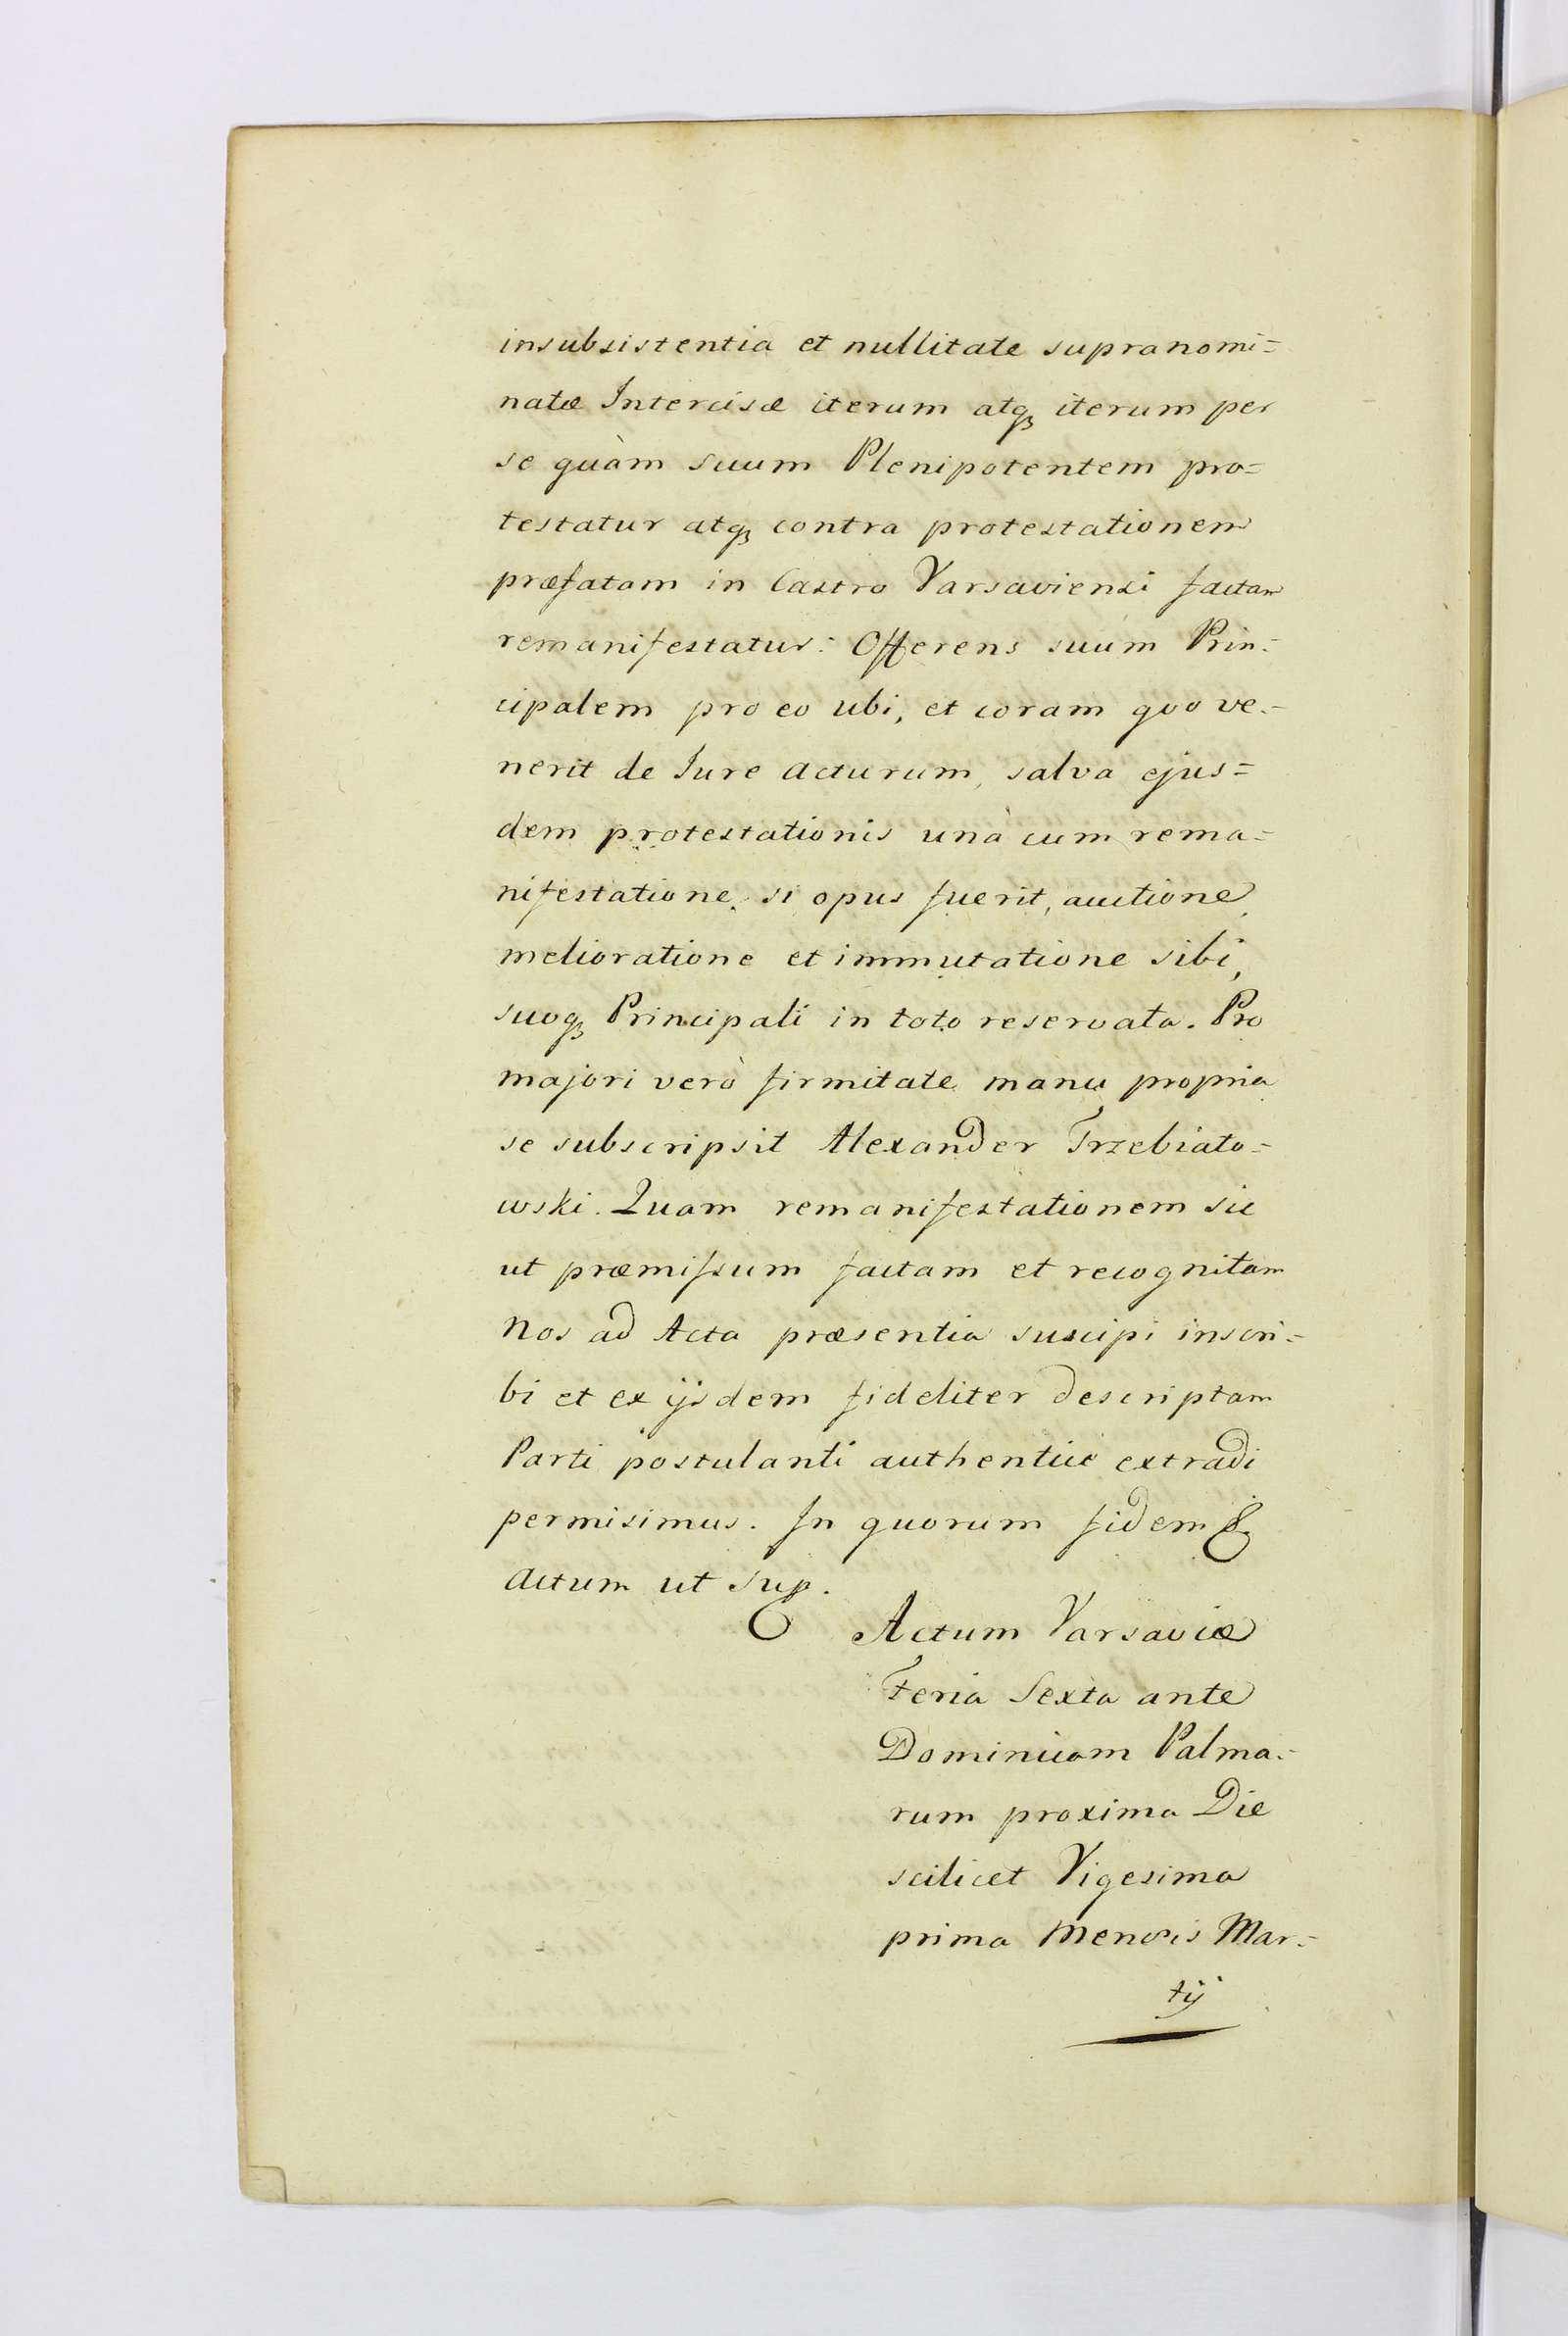 insubsistentia et nullitate supranomi=
natæ Intercisæ iterum atq₃ iterum per
se quàm suum Plenipotentem pro=
testatur atq₃ contra protestationem
præfatam in Castro Varsaviensi factam
remanifestatur: Offerens suum Prin=
cipalem pro eo ubi, et coram quo ve=
nerit de Jure acturum, salva ejus=
dem protestationis unà cum rema=
nifestatione, si opus fuerit, auctione,
melioratione et immutatione sibi,
suoq₃ Principali in toto reservata. Pro
majori verò firmitate manu propria
se subscripsit Alexander Trzebiato=
wski. Quam remanifestationem sic
ut præmissum factam et recognitam
Nos ad Acta præsentia suscipi inscri=
bi et ex ijsdem fideliter descriptam
Parti postulanti authentice extradi
permisimus. In quorum fidem &
Actum ut sup.
Actum Varsaviæ
Feria Sexta ante
Dominicam Palma=
rum proxima Die
scilicet Vigesima
prima Mensis Mar=
tij